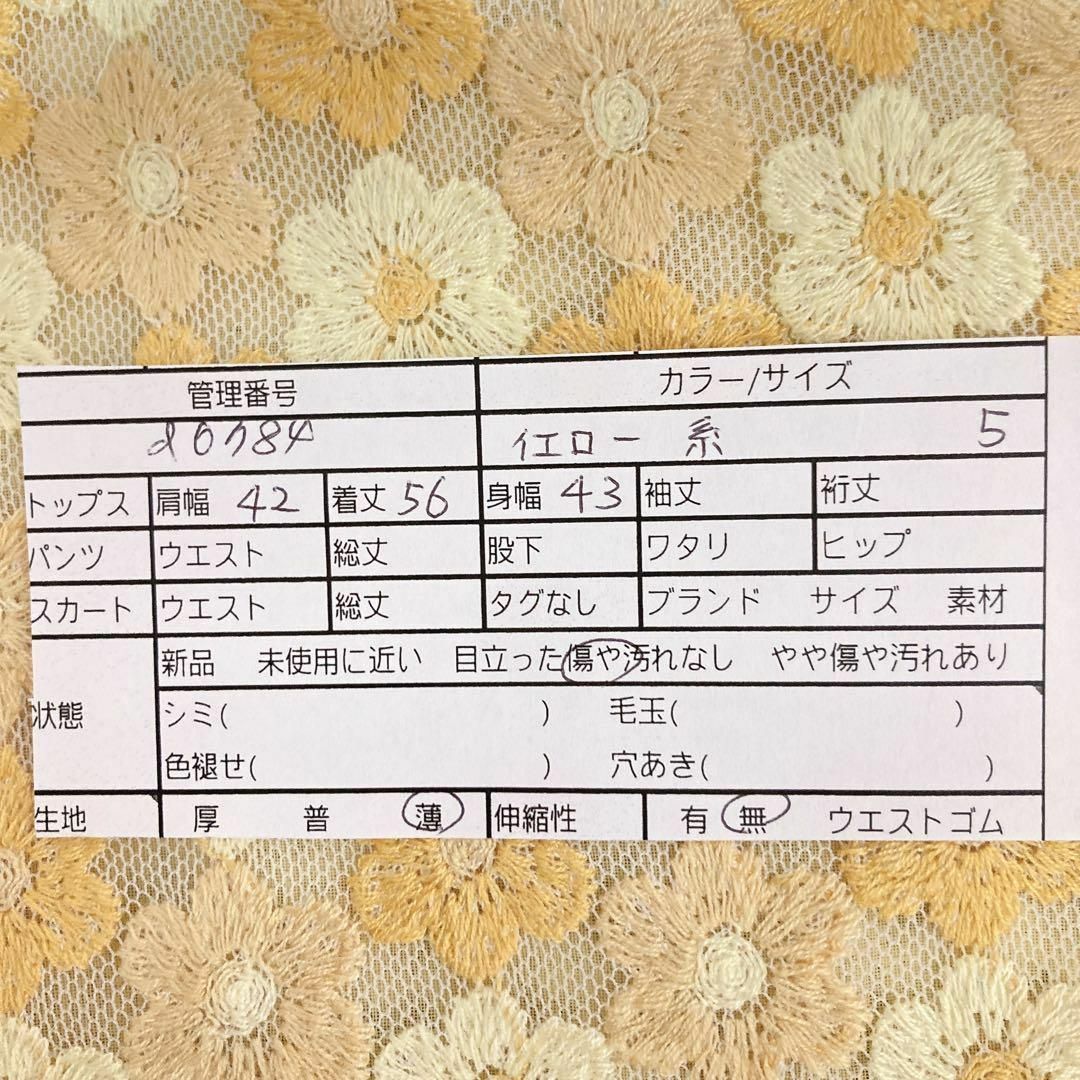 管理番号 カラー/サイズ
d0784 イエロー 系 5
トップス 肩幅 42 着丈 56 身幅 43 袖丈 裄丈
パンツ ウエスト 総丈 股下 ワタリ ヒップ
スカート ウエスト 総丈 タグなし ブランド サイズ 素材
新品 未使用に近い 目立った傷や汚れなし やや傷や汚れあり
状態 シミ( ) 毛玉( )
色褪せ( ) 穴あき( )
生地 厚 普 薄 伸縮性 有 無 ウエストゴム